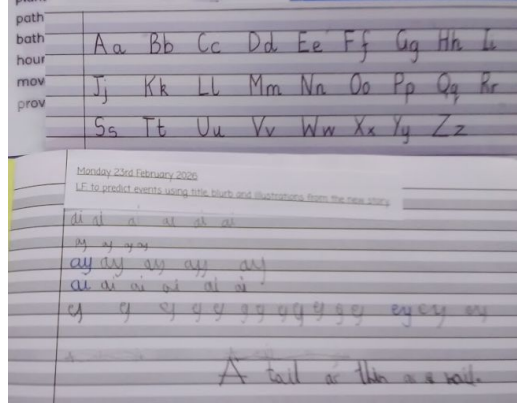 path
bath
hour
mov
prov
Aa Bb Cc Dd Ee Ff Gg Hh Ii
Jj Kk Ll Mm Nn Oo Pp Qq Rr
Ss Tt Uu Vv Ww Xx Yy Zz
Monday 23rd February 2026
LF: to predict events using title blurb and illustrations from the new story
ai ai ai ai ai
ay ay ay ay ay
ai ai ai ai ai ai
ey ey ey
A tail as thin as a nail.